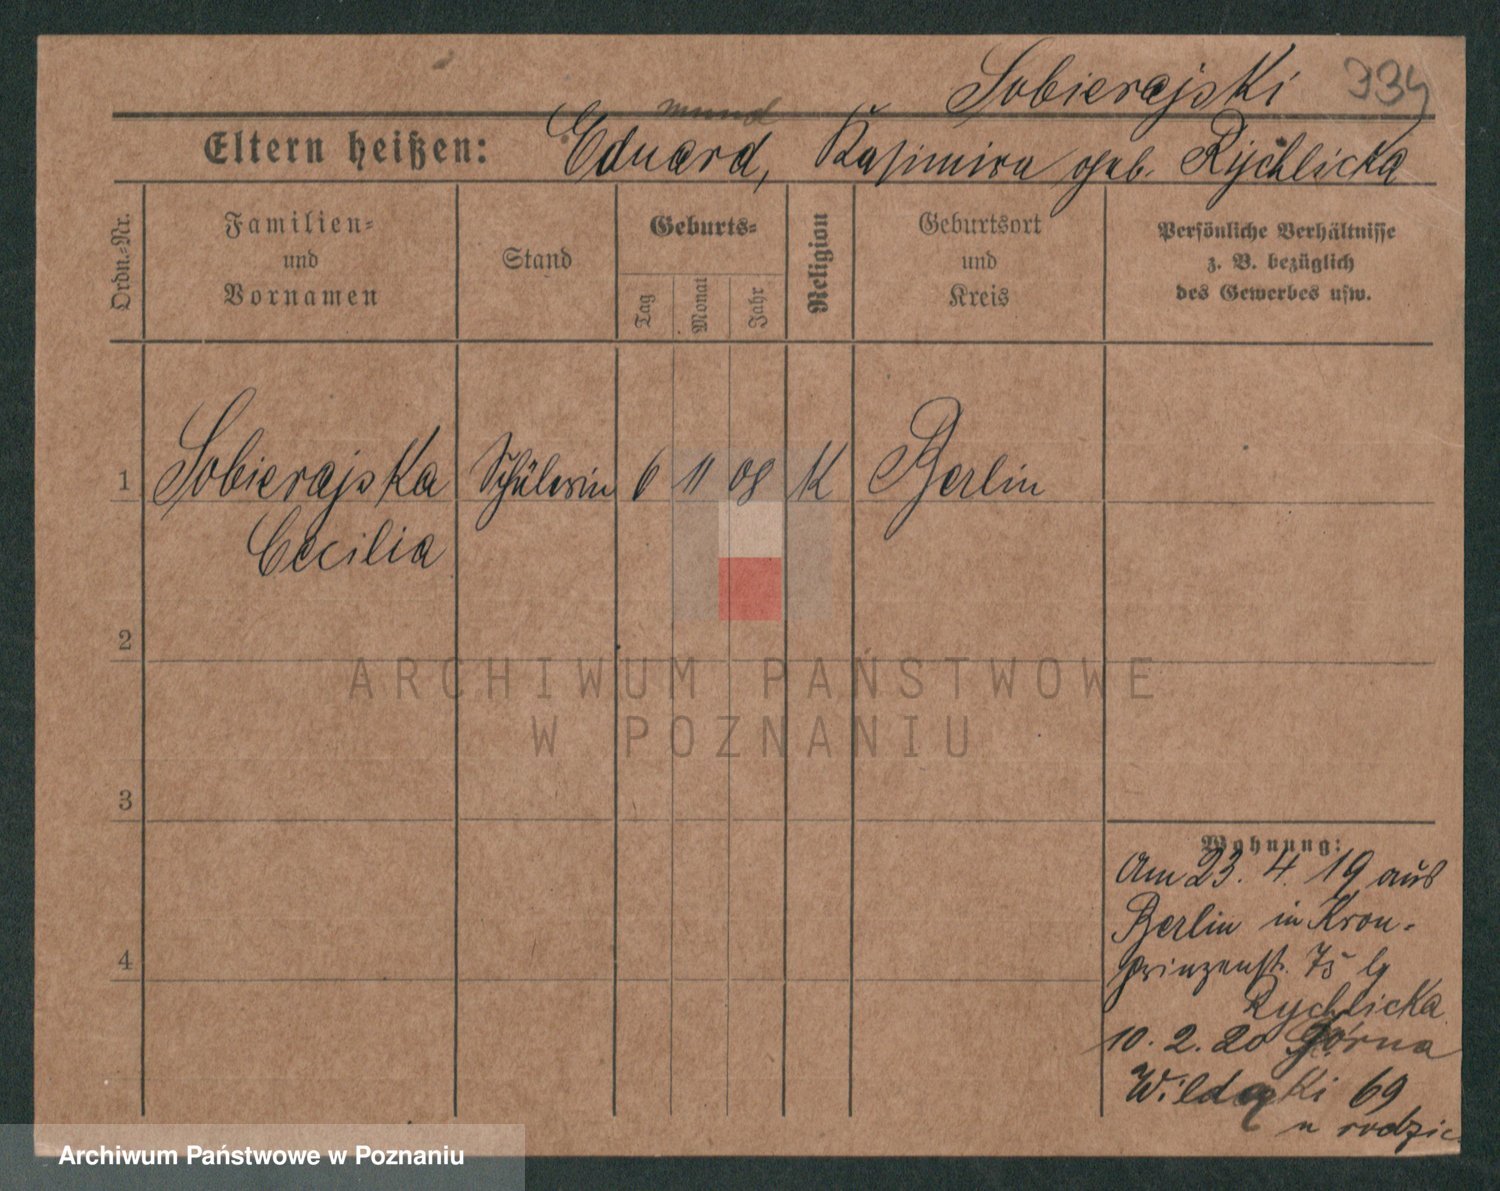 Sobierajski 334
mund
Eltern heißen: Eduard, Kasimira geb. Rychlicka
Ordn.-Nr.
Familien-
und
Vornamen
Stand
Geburts-
Tag Monat Jahr
Religion
Geburtsort
und
Kreis
Persönliche Verhältnisse
z. B. bezüglich
des Gewerbes usw.
1 Sobierajska Schülerin 6 11 08 K Berlin
Cecilia
2
3
4
Wohnung:
Am 23. 4. 19 aus
Berlin in Kron-
prinzenst. 75 bg
Rychlicka
10. 2. 20 Górna
Wilda 69
u rodzic
ARCHIWUM PAŃSTWOWE
W POZNANIU
Archiwum Państwowe w Poznaniu